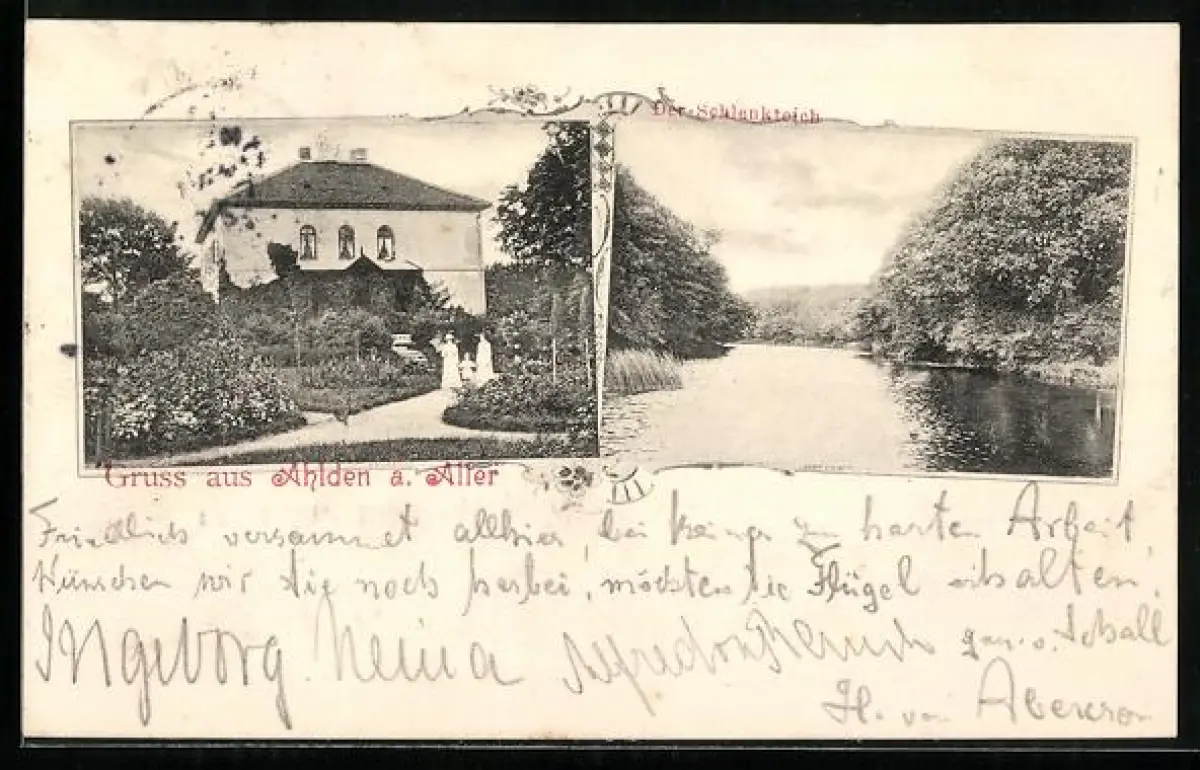 Der Schlenkteich
Gruss aus Ahlden a. Aller
Friedlich versammet allhier, bei keiner zu harten Arbeit,
Wünschen wir Sie noch herbei, möchten Sie Flügel erhalten.
Ingeborg. Meina Alfred von
H. von